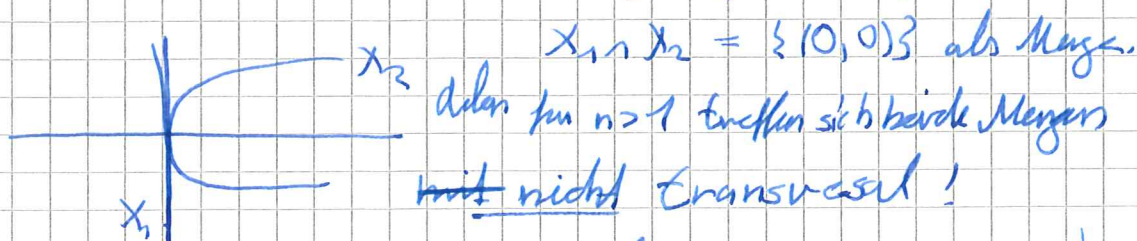 X₁ ∩ X₂ = {(0,0)} als Menge.
X₂
Aber für n>1 treffen sich beide Mengen
nicht transversal!
X₁